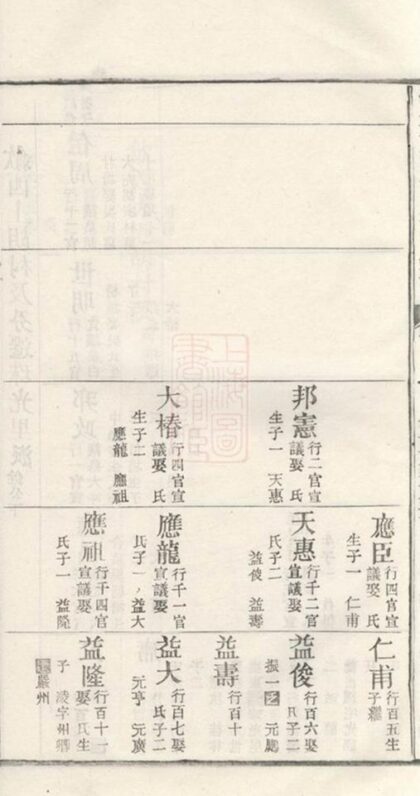 邦憲
行二官宣
議娶 氏
生子一 天惠
大椿
行四官宣
議娶 氏
生子二
應龍 應祖
應臣
行四官宣
議娶 氏
生子一 仁甫
天惠
行千二官
宣議娶
氏子二
益俊 益壽
應龍
行千一官
宣議娶
氏子一 益大
應祖
行千四官
宣議娶
氏子一 益隆
仁甫
行百五生
子
益俊
行百六娶
氏子二
振一
益壽
行百十
益大
行百七娶
氏子二
元亨 元廣
益隆
行百十一
娶 氏生
子
嚴州
上海圖
書館臧